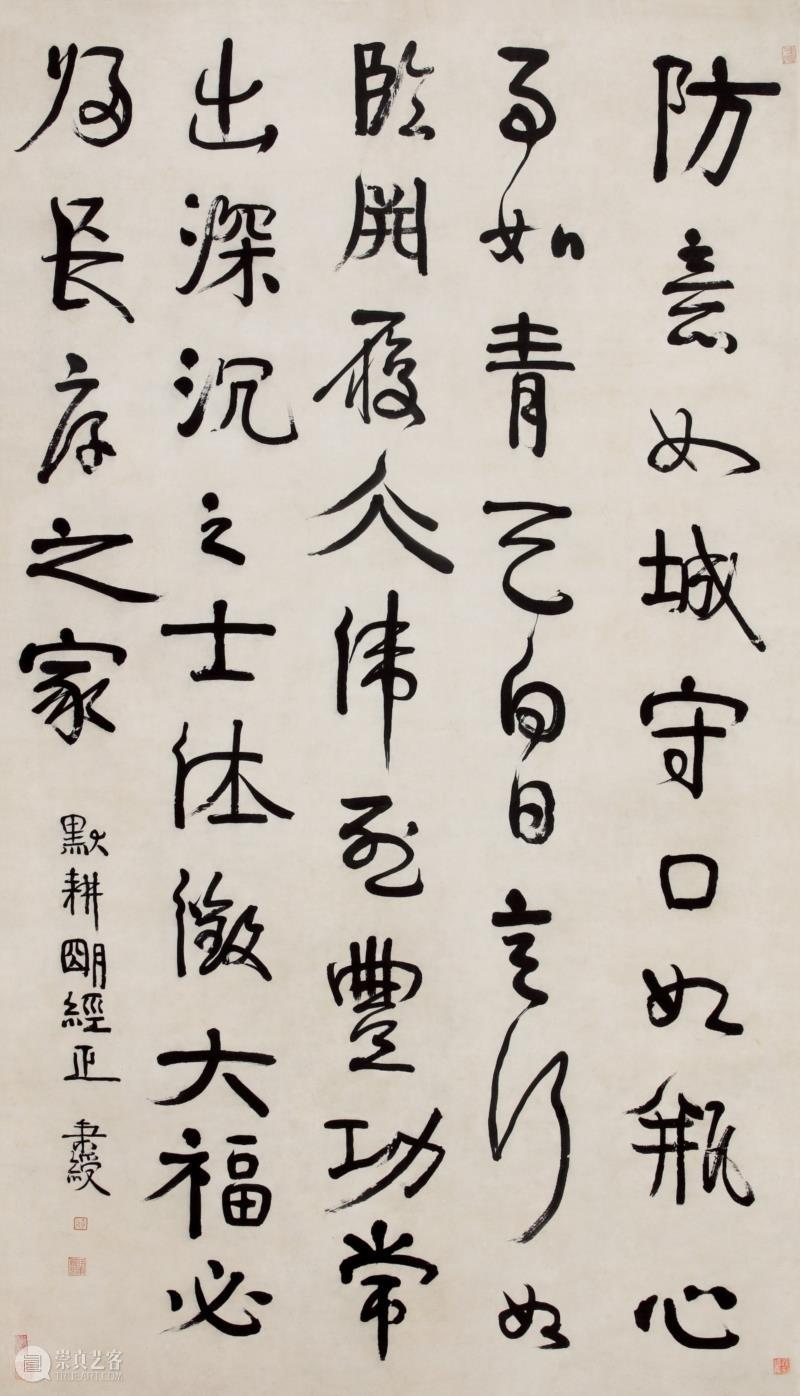 防意如城守口如瓶心
事如青天白日言行如
臨𣶒履仌偉烈豐功常
出深沉之士休徵大福必
歸長厚之家
默耕朙經正 秉綬
崇真艺客
TRUEART.COM